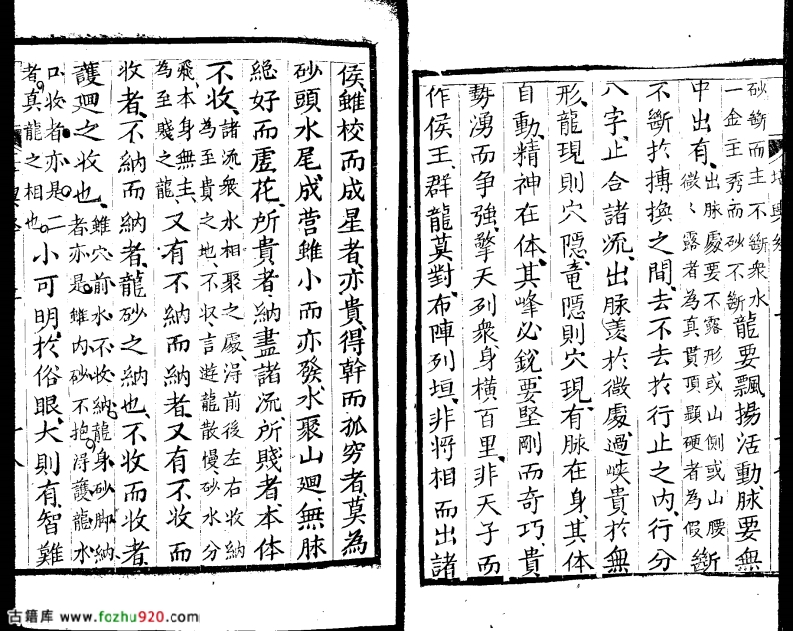 砂斷而主不斷衆水
一金王秀而砂不斷龍要飄揚活動、脉要無
中出有、微〻露者為真貫頂顯硬者為假出脉處要不露形或山側或山腰斷
不斷於摶換之間、去不去於行止之內、行分
八字、止合諸流、出脉羨於微處、過峽貴於無
形、龍現則穴隱、竜隱則穴現、有脉在身、其体
自動、精神在体、其峰必銳、要堅剛而奇巧、貴
勢湧而争強、擎天列衆、身横百里、非天子而
作侯王、群龍莫對、布陣列垣、非將相而出諸
侯、雖校而成星者亦貴、得幹而孤穷者、莫為
砂頭水尾、成营雖小而亦發、水聚山廻、無脉
絶好而虚花、所貴者納盡諸流、所賤者、本体
不收、諸流衆水相聚之處、淂前後左右收納
為至貴之地、不収言遊龍散慢砂水分
飛、本身無主、
為至賤之龍又有不納而納者、又有不收而
收者、不納而納者、龍砂之納也、不收而收者
護廻之收也、雖穴前水不收納龍身砂脚納
者亦是雖内砂不抱淂護龍水
口收者亦是二
者真龍之相也小可明、於俗眼、大則有智難
十八
古籍库 www.fozhu920.com